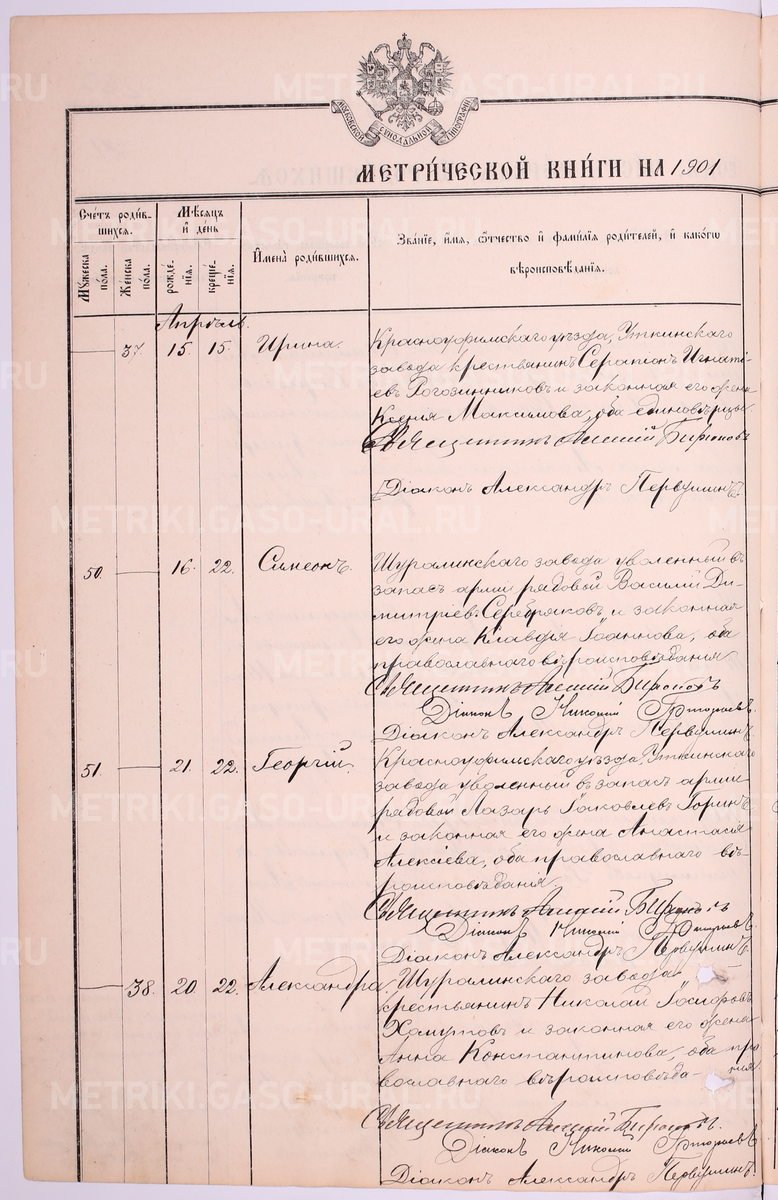 МОСКОВСКОЙ СУНОДАЛЬНОЙ ТИПОГРАФІИ
МЕТРИ́ЧЕСКОЙ КНИ́ГИ НА 1901
Сче́тъ роди́в-
шихся.
Мѣ́сяцъ
и́ де́нь
Имена̀ роди́вшихся.
Зва́нїе, и́мя, ѻ҆́тчество и҆ фами́лїя роди́телей, и҆ како́гѡ
вѣроисповѣ́данїя.
Му́жеска
по́ла.
Же́нска
по́ла.
рожде́-
нїя.
креще́-
нїя.
Апрѣль.
37. 15. 15. Ирина.
Красноуфимскаго уѣзда, Уткинскаго
завода крестьянинъ Серапіонъ Игнатi-
евъ Рогозинниковъ и законная его жена
Ксенія Максимова, оба единовѣрцы
Священникъ Алексій Бирюковъ
Діаконъ Александръ Первушинъ.
50. 16. 22. Симеонъ.
Шуралинскаго завода уволенный въ
запасъ арміи рядовой Василій Ди-
митріевъ Серебряковъ и законная
его жена Клавдія Іоаннова, оба
православнаго вѣроисповѣданія
Священникъ Алексій Бирюковъ
Діаконъ Николай
Діаконъ Александръ Первушинъ.
51. 21. 22. Георгій.
Красноуфимскаго уѣзда, Уткинскаго
завода уволенный въ запасъ арміи
рядовой Лазарь Іаковлевъ Горинъ
и законная его жена Анастасія
Алексіева, оба православнаго вѣ-
роисповѣданія.
Священникъ Алексій Бирюковъ
Діаконъ Николай
Діаконъ Александръ Первушинъ.
38. 20. 22. Александра.
Шуралинскаго завода
крестьянинъ Николай Іосифовъ
Хомутовъ и законная его жена
Анна Константинова, оба пра
вославнаго вѣроисповѣда-
нія
Священникъ Алексій Бирюковъ.
Діаконъ Николай
Діаконъ Александръ Первушинъ.
METRIKI.GASO-URAL.RU